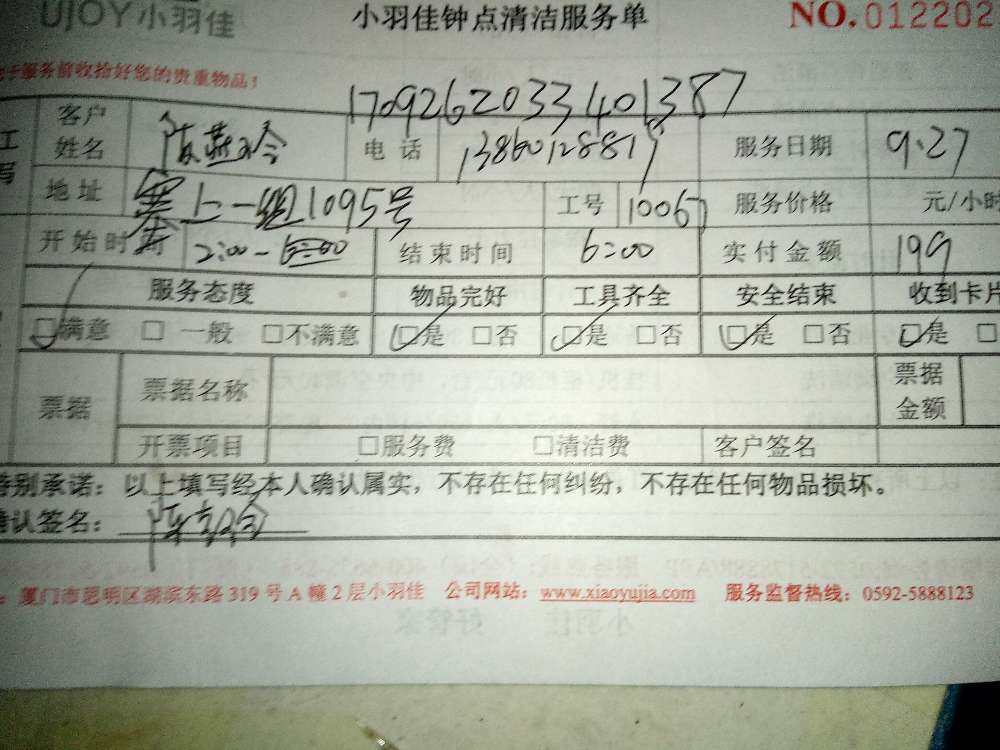 UJOY小羽佳 小羽佳钟点清洁服务单 NO.012202
于服务前收拾好您的贵重物品!
1709262033401387
客户姓名 陈燕玲 电话 13860128819 服务日期 9.27
地址 寨上一组1095号 工号 10067 服务价格 元/小时
开始时间 2:00- 结束时间 6:00 实付金额 199
服务态度 物品完好 工具齐全 安全结束 收到卡片
☑满意 □一般 □不满意 ☑是 □否 ☑是 □否 ☑是 □否 ☑是 □
票据 票据名称 票据金额
开票项目 □服务费 □清洁费 客户签名
特别承诺:以上填写经本人确认属实,不存在任何纠纷,不存在任何物品损坏。
确认签名:
厦门市思明区湖滨东路319号A幢2层小羽佳 公司网站:www.xiaoyujia.com 服务监督热线:0592-5888123